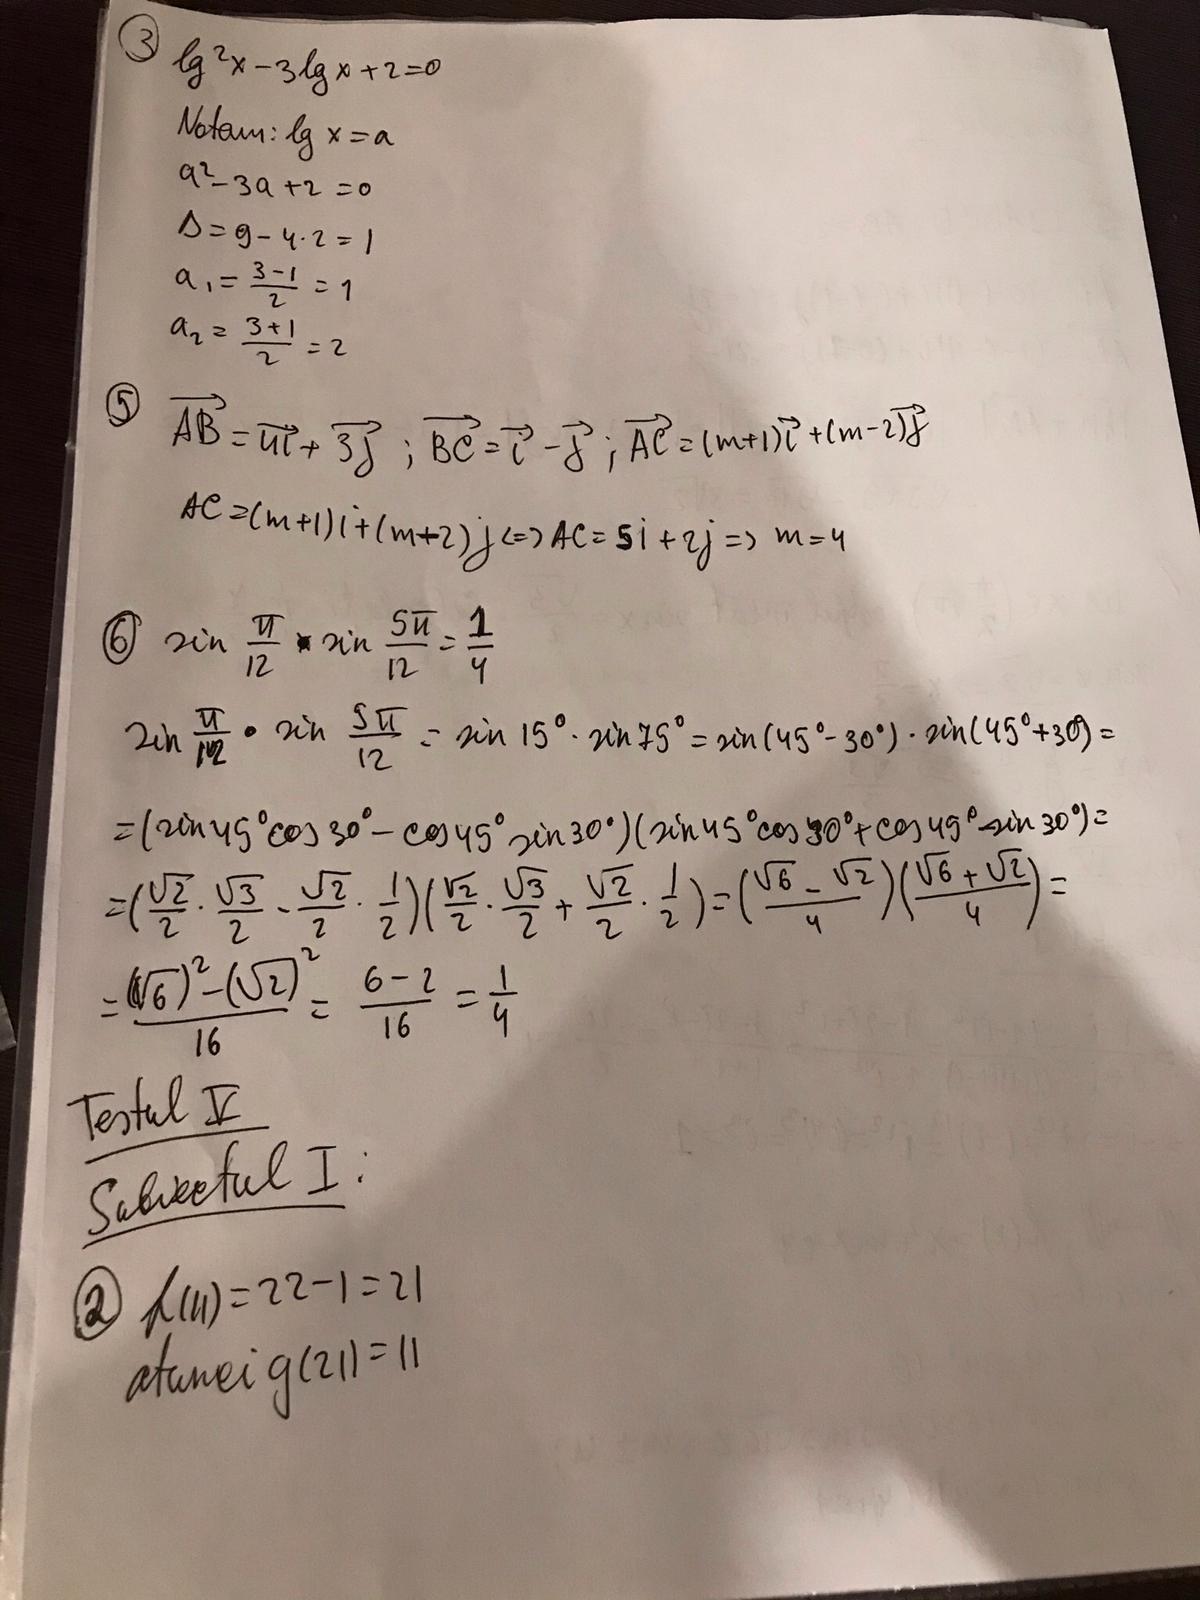 ③ lg²x-3lgx+2=0
Notam: lg x=a
a²-3a+2=0
Δ=9-4·2=1
a₁=(3-1)/2=1
a₂=(3+1)/2=2
⑤ →AB=→4i+→3j ; →BC=→i-→j ; →AC=(m+1)→i+(m-2)→j
AC=(m+1)i+(m+2)j<=>AC=5i+2j=>m=4
⑥ sin π/12 · sin 5π/12 = 1/4
sin π/12 · sin 5π/12 = sin 15°·sin75°=sin(45°-30°)·sin(45°+30°)=
=(sin45°cos30°-cos45°sin30°)(sin45°cos30°+cos45°sin30°)=
=(√2/2·√3/2-√2/2·1/2)(√2/2·√3/2+√2/2·1/2)=((√6-√2)/4)((√6+√2)/4)=
=((√6)²-(√2)²)/16=(6-2)/16=1/4
Testul IV
Subiectul I:
② f(11)=22-1=21
atunci g(21)=11